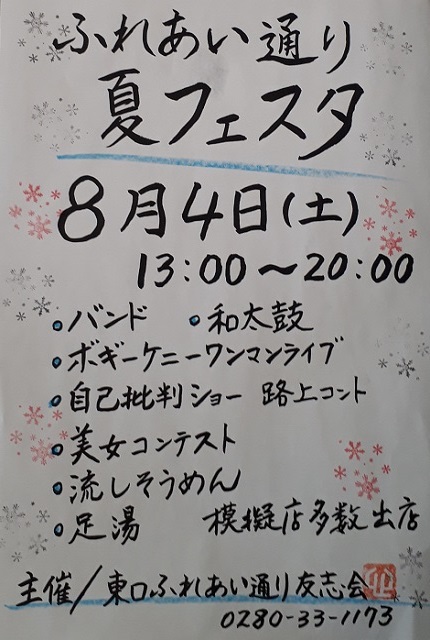 ふれあい通り
夏フェスタ
8月4日(土)
13:00〜20:00
•バンド •和太鼓
•ボギーケニーワンマンライブ
•自己批判ショー 路上コント
•美女コンテスト
•流しそうめん
•足湯 模擬店多数出店
主催/東口ふれあい通り友志会
0280-33-1173